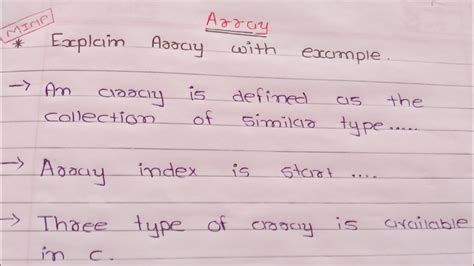 Array
M.IMP
* Explain Array with example.
→ An array is defined as the
collection of similar type.....
→ Array index is start ....
→ Three type of array is available
in c.